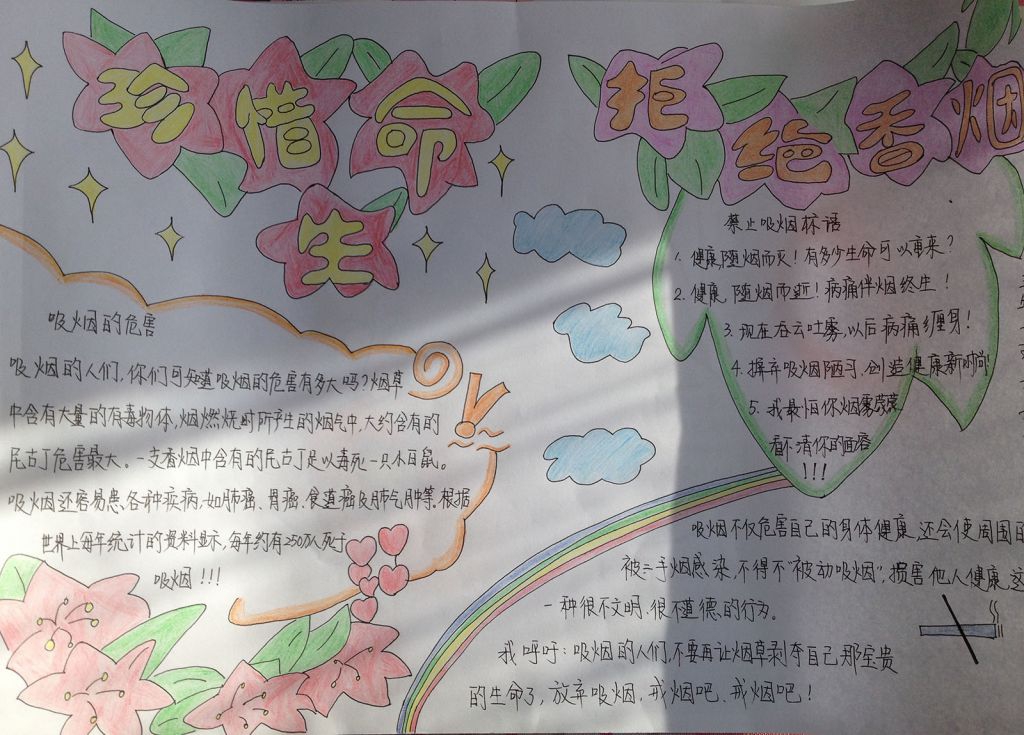 珍惜命
生
拒绝香烟
吸烟的危害
吸烟的人们,你们可知道吸烟的危害有多大吗?烟草
中含有大量的有毒物体,烟燃烧时所产生的烟气中,大约含有的
尼古丁危害最大。一支香烟中含有的尼古丁足以毒死一只小白鼠。
吸烟还容易患各种疾病,如肺癌、胃癌、食道癌及肺气肿等.根据
世界上每年统计的资料显示,每年约有250万人死于
吸烟!!!
禁止吸烟标语
1. 健康,随烟而灭!有多少生命可以重来?
2. 健康,随烟而逝!病痛伴烟终生!
3. 现在吞云吐雾,以后病痛缠身!
4. 摒弃吸烟陋习,创造健康新时尚
5. 我最怕你烟雾
看不清你的面容
!!!
吸烟不仅危害自己的身体健康,还会使周围的
被二手烟感染,不得不"被动吸烟",损害他人健康,这
一种很不文明、很不道德的行为。
我呼吁:吸烟的人们,不要再让烟草剥夺自己那宝贵
的生命了,放弃吸烟,戒烟吧、戒烟吧!